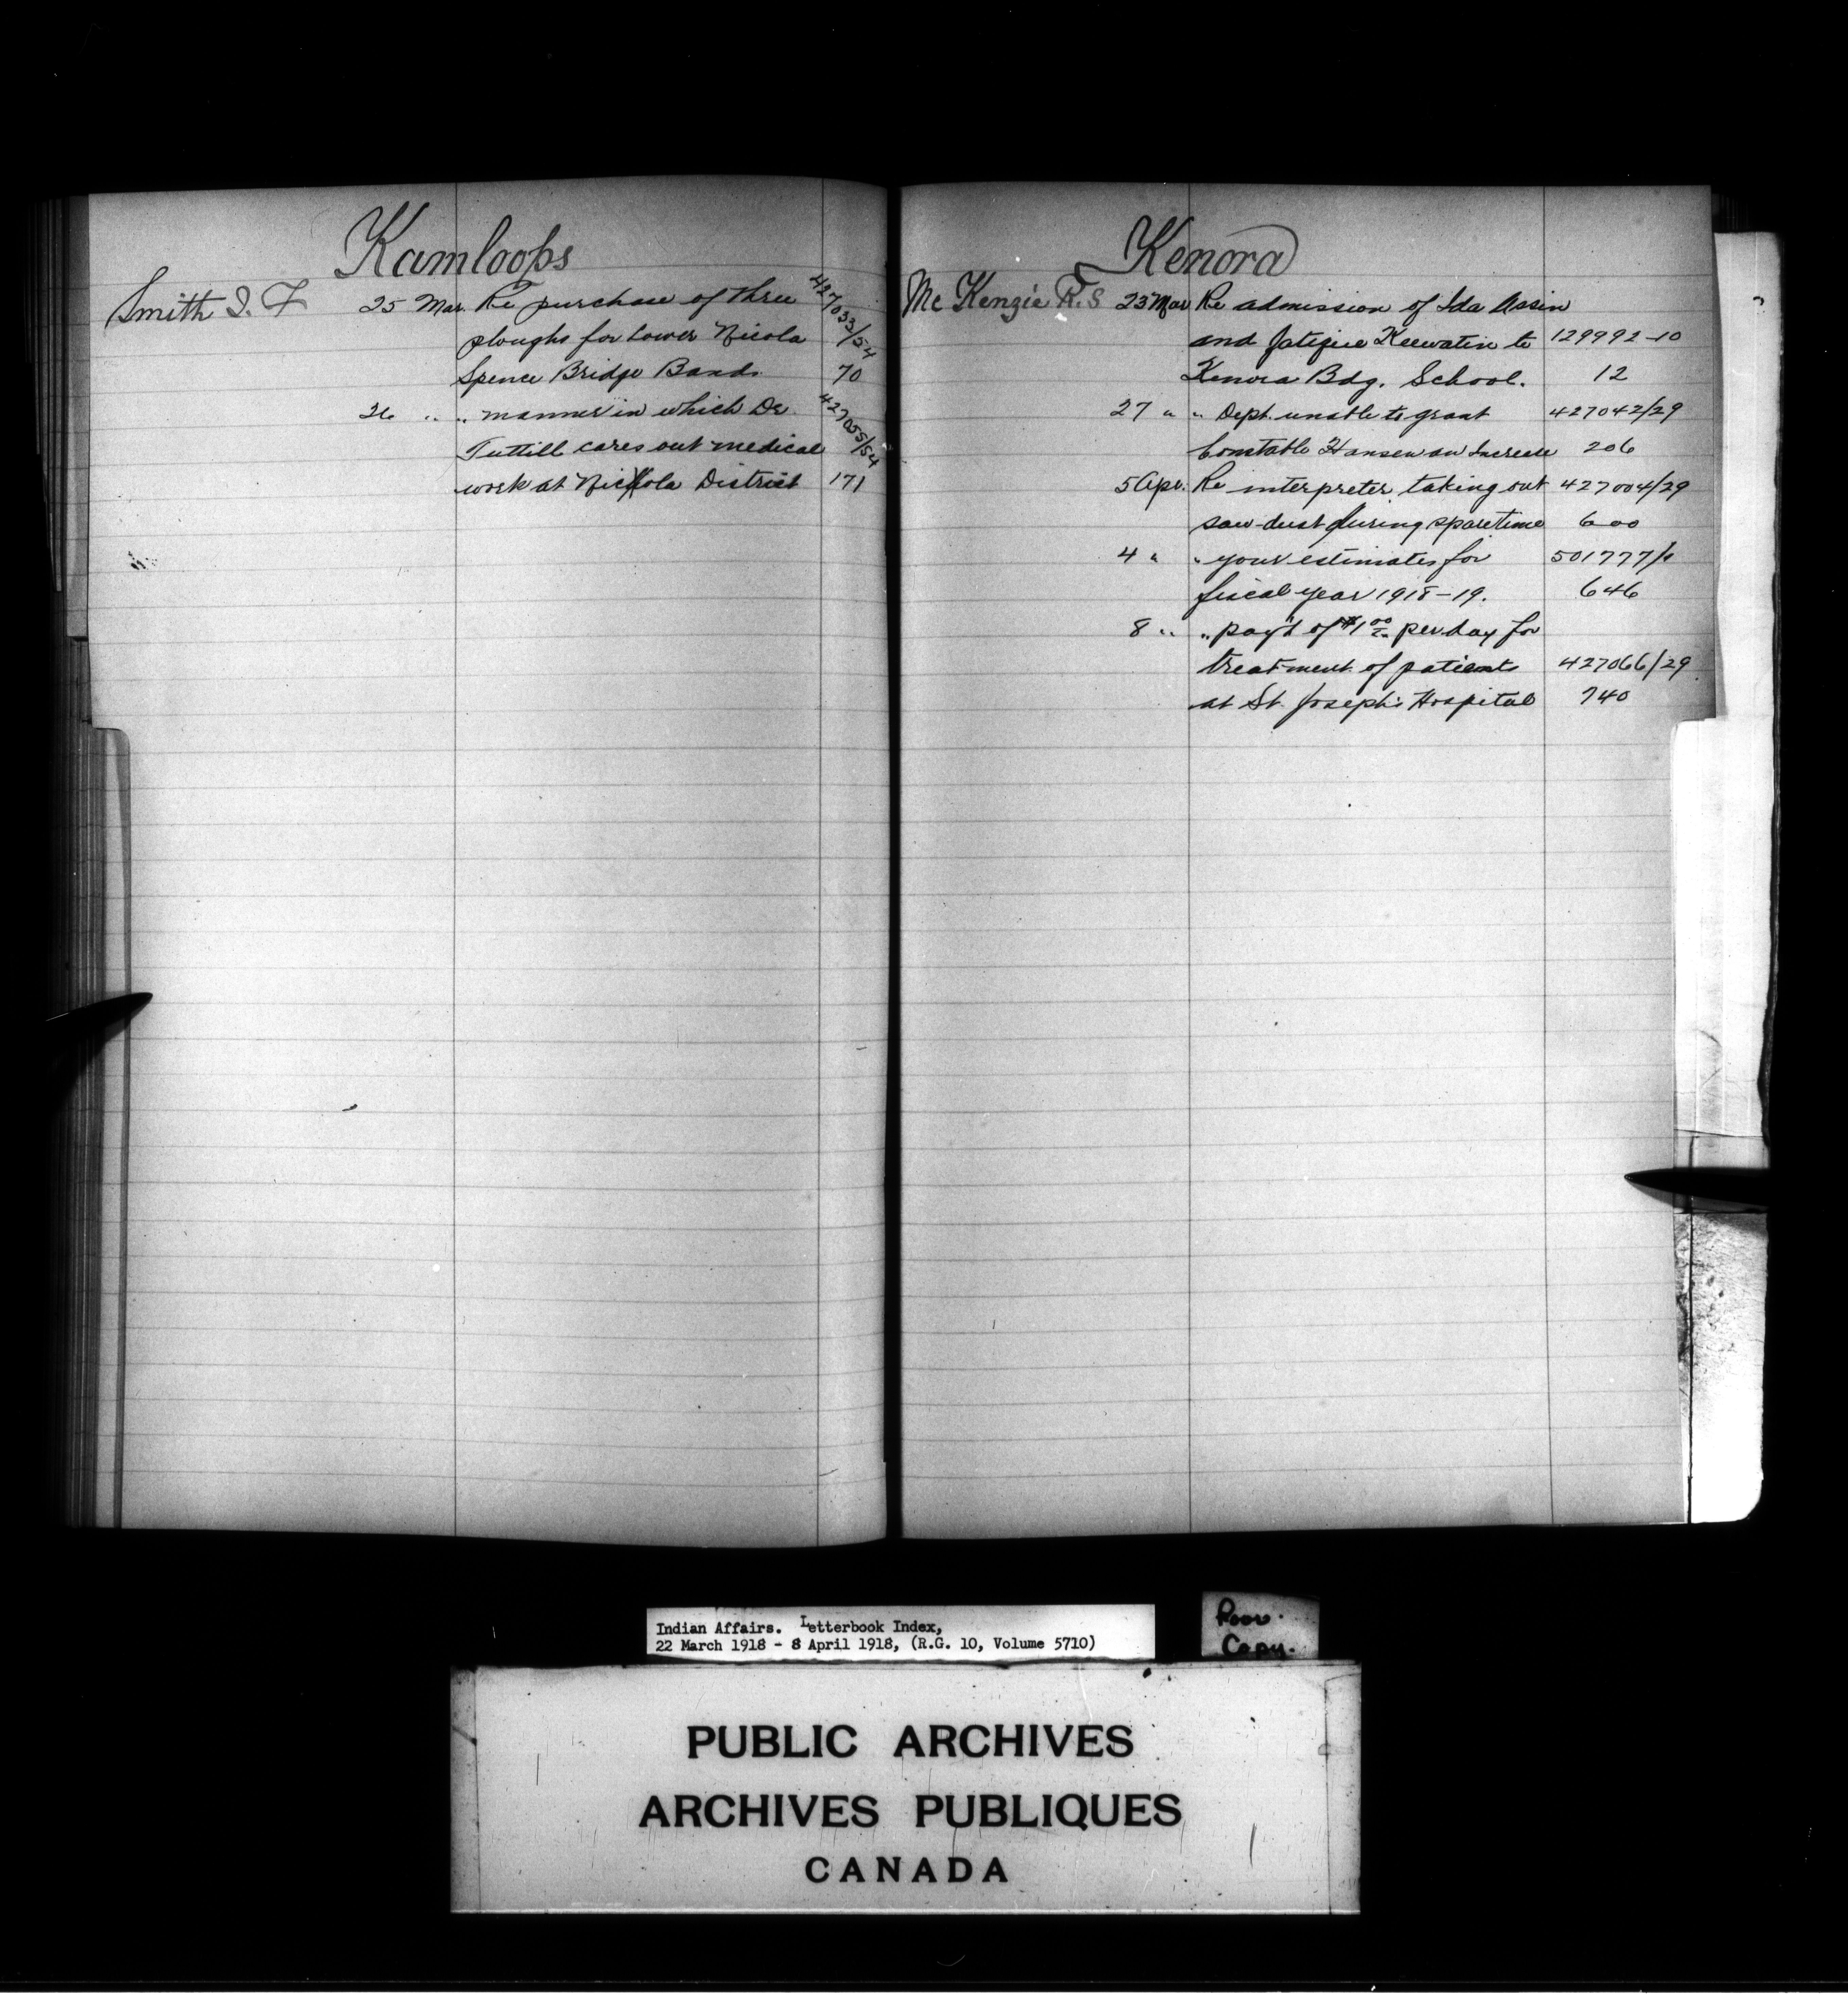 Kamloops
Smith J. F 25 Mar. Re purchase of three 427033/54
ploughs for Lower Nicola
Spence Bridge Bands. 70
26 " " manner in which Dr. 427055/54
Tuttill cares out medical
work at Nicola District 171
Kenora
Mc Kenzie R. S 23 Mar Re admission of Ida Assin
and Keewatin to 129992-10
Kenora Bdg. School. 12
27 " " Dept. unable to grant 427042/29
Constable Hansen an Increase 206
5 Apr. Re interpreter taking out 427004/29
saw-dust during spare time 600
4 " " your estimates for 501777/1
fiscal year 1918-19. 646
8 " " pay't of $1 00 per day for
treatment of patients 427066/29
at St. Joseph's Hospital 740
Indian Affairs. Letterbook Index,
22 March 1918 - 8 April 1918, (R.G. 10, Volume 5710)
Poor.
Copy.
PUBLIC ARCHIVES
ARCHIVES PUBLIQUES
CANADA